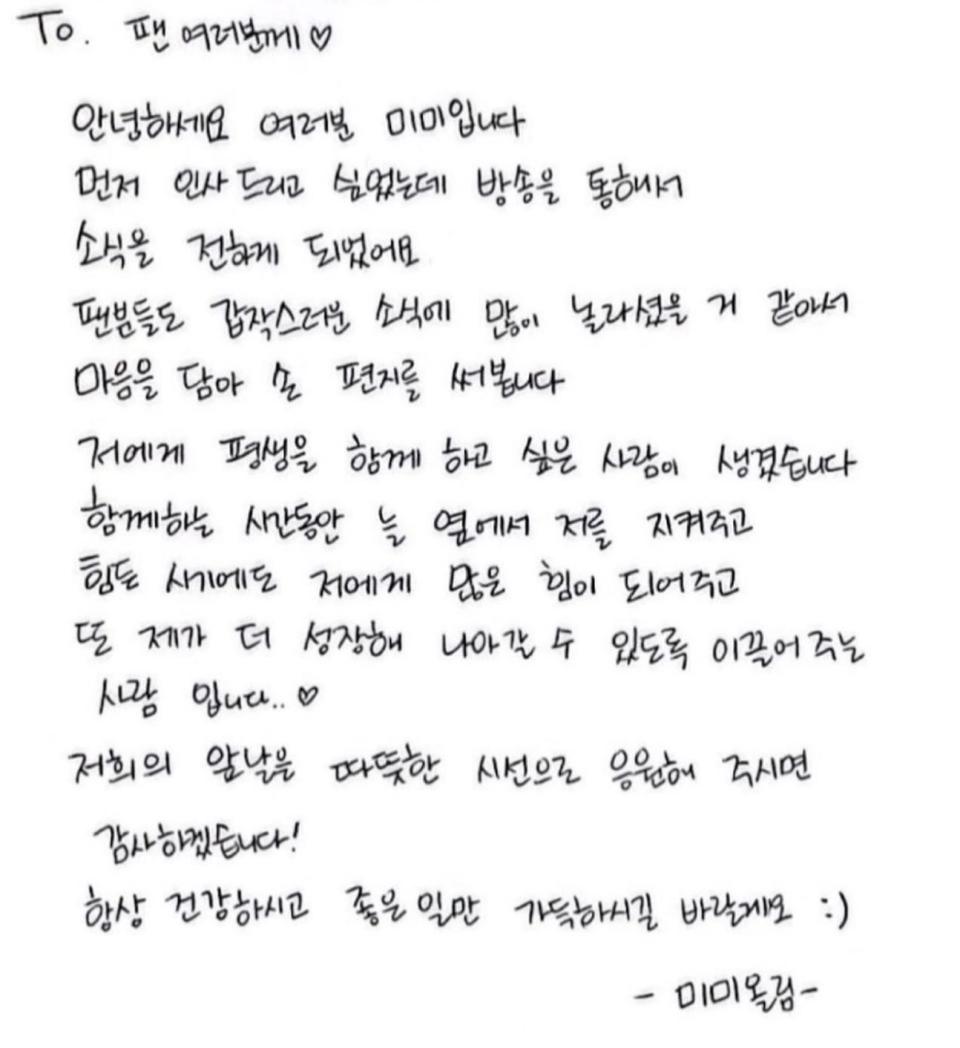 To. 팬 여러분께♡
안녕하세요 여러분 미미입니다
먼저 인사 드리고 싶었는데 방송을 통해서
소식을 전하게 되었어요
팬분들도 갑작스러운 소식에 많이 놀라셨을 거 같아서
마음을 담아 손 편지를 써봅니다
저에게 평생을 함께 하고 싶은 사람이 생겼습니다
함께하는 시간동안 늘 옆에서 저를 지켜주고
힘든 시기에도 저에게 많은 힘이 되어주고
또 제가 더 성장해 나아갈 수 있도록 이끌어주는
사람 입니다..♡
저희의 앞날을 따뜻한 시선으로 응원해 주시면
감사하겠습니다!
항상 건강하시고 좋은 일만 가득하시길 바랄게요 :)
- 미미올림-